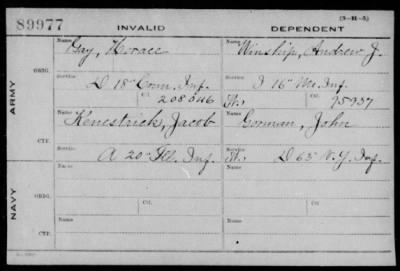 89977 INVALID DEPENDENT (3-H-5)
ARMY
ORIG.
Name Gay, Horace
Name Winship, Andrew J.
Service D 18" Conn. Inf.
Service I 16" Me. Inf.
Ctf. 208546
Ctf. 75937
CTF.
Name Kenestrick, Jacob
Name Gorman, John
Service A 20" Ill. Inf.
Service D 63" N.Y. Inf.
NAVY
ORIG.
Name
Ctf.
Name
Ctf.
CTF.
Name
Name